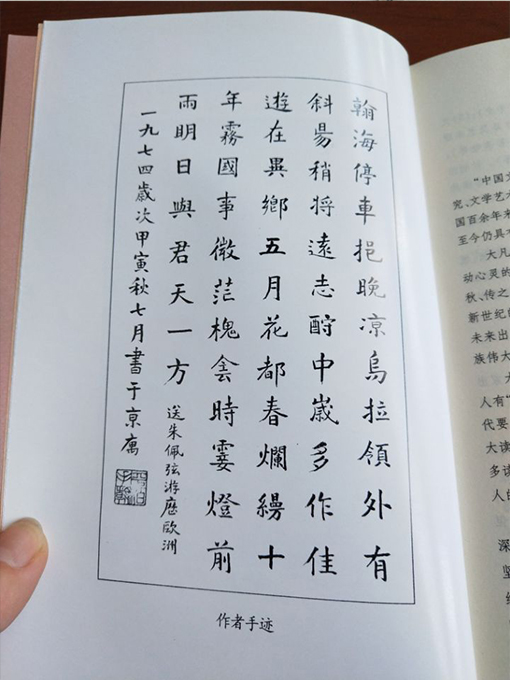 翰海停車挹晚凉烏拉領外有
斜昜稍將遠志酧中歲多作佳
遊在異鄉五月花都春爛縵十
年霧國事微茫槐侌時霎燈前
雨明日與君天一方
送朱佩弦游歷歐洲
一九七四歲次甲寅秋七月書于京寓
作者手迹
“中国文
究、文学艺
国百余年来
至今仍具
大凡
动心灵的
秋、传之
新世纪的
未来出
族伟大
人有“
代要
大读
多读
人的
深
坚